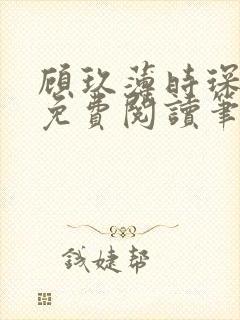 顾玖薄时琛
免费阅读笔
钱婕帮